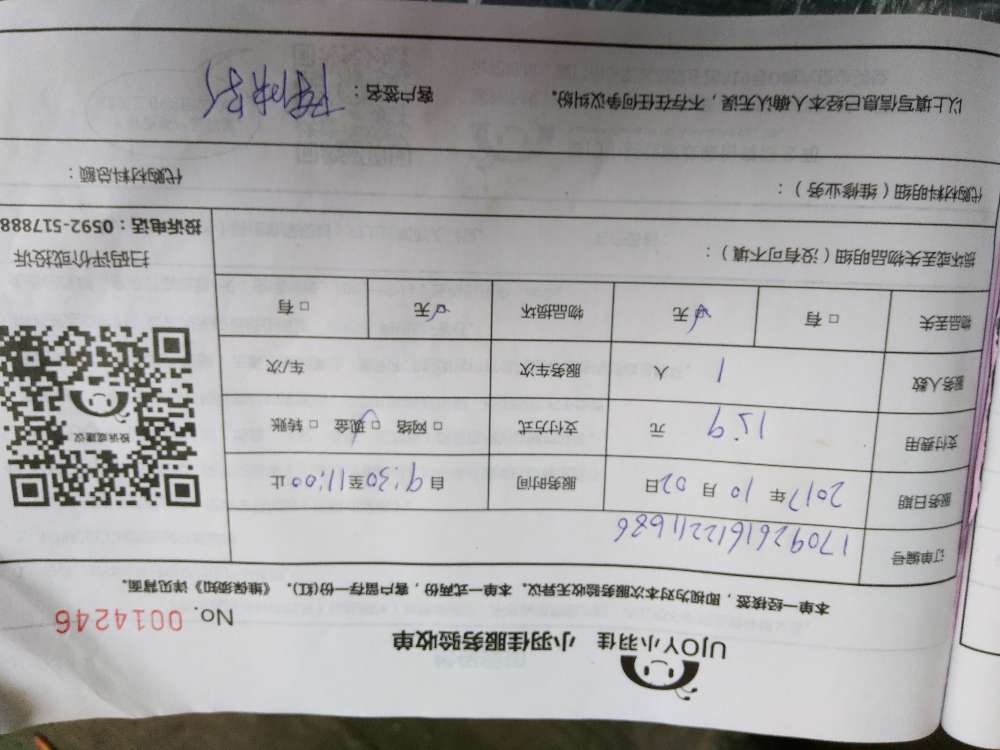 UJOY小羽佳 小羽佳服务验收单
No. 0014246
本单一经接签，即视为对本次服务验收无异议。本单一式两份，客户留存一份(红)。《维保须知》详见背面。
订单编号 1709261612211686
服务日期 2017 年 10 月 02 日 服务时间 自 9:30 至 11:00 止
支付费用 129 元 支付方式 □ 网络 □ 现金 □ 转账
服务人数 1 人 服务车次 车/次
物品丢失 □ 有 □ 无 物品损坏 □ 无 □ 有
损坏或丢失物品明细（没有可不填）：
代购材料明细（维修业务）： 代购材料总额：
以上填写信息已经本人确认无误，不存在任何争议纠纷。 客户签名：
投诉或建议
扫码评价或投诉
投诉电话：0592-517888